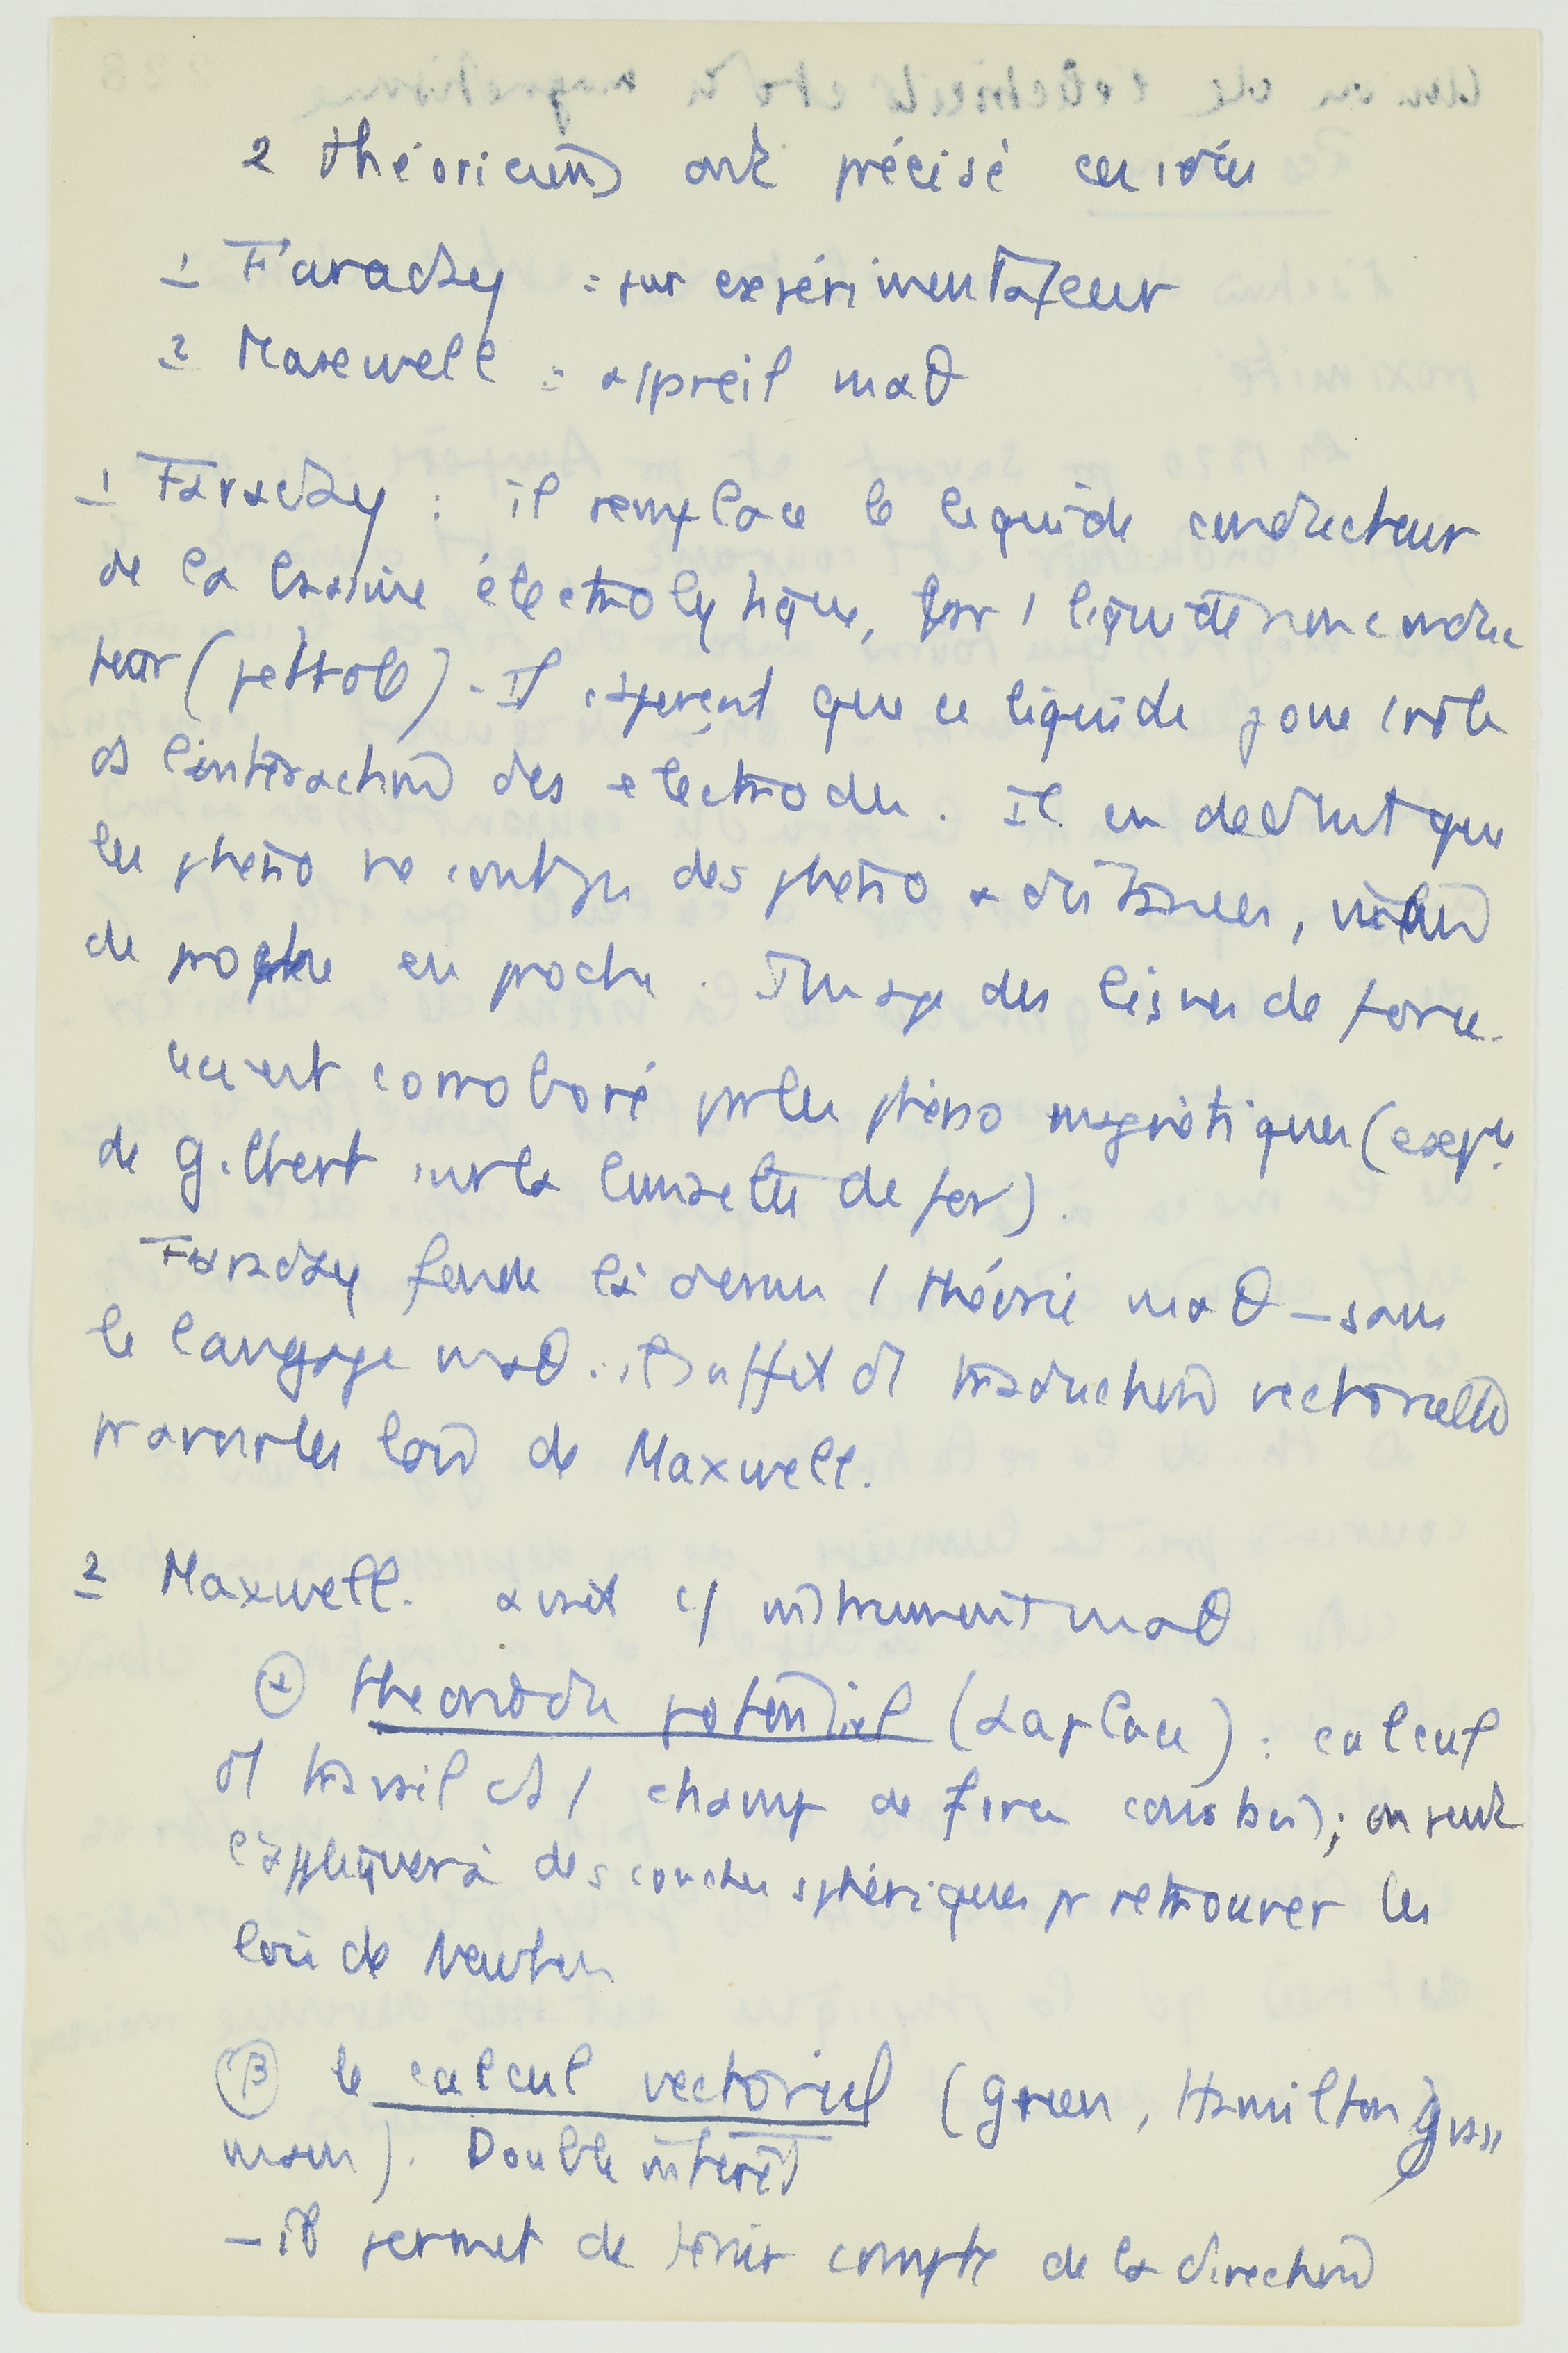 2 théoriciens ont précisé ces idées
1 Faraday : pur expérimentateur
2 Maxwell : appareil maθ
1 Faraday : il remplace le liquide conducteur
de la cuve électrolytique, par 1 liquide non conduc
teur (pétrole). Il aperçoit que ce liquide joue 1 rôle
ds l'intéraction des electrodes. Il en deduit que
les phéno ne sont pas des phéno a distances, mais
de proche en proche. Image des lignes de force.
ceci est corroboré par les phéno magnétiques (exp.
de Gilbert sur la limaille de fer).
Faraday fonde là dessus 1 théorie maθ – sans
le langage maθ. Il suffit d' traduction vectorielle
pr avoir les lois de Maxwell.
2 Maxwell. avait c/ instrument maθ
α theorie du potentiel (Laplace) : calcul
d' travail ds 1 champ de force ; on peut
l'appliquer à des couches sphériques pr retrouver les
lois de Newton
β le calcul vectoriel (Green, Hamilton, Grass
mann). Double intérêt
– il permet de tenir compte de la direction